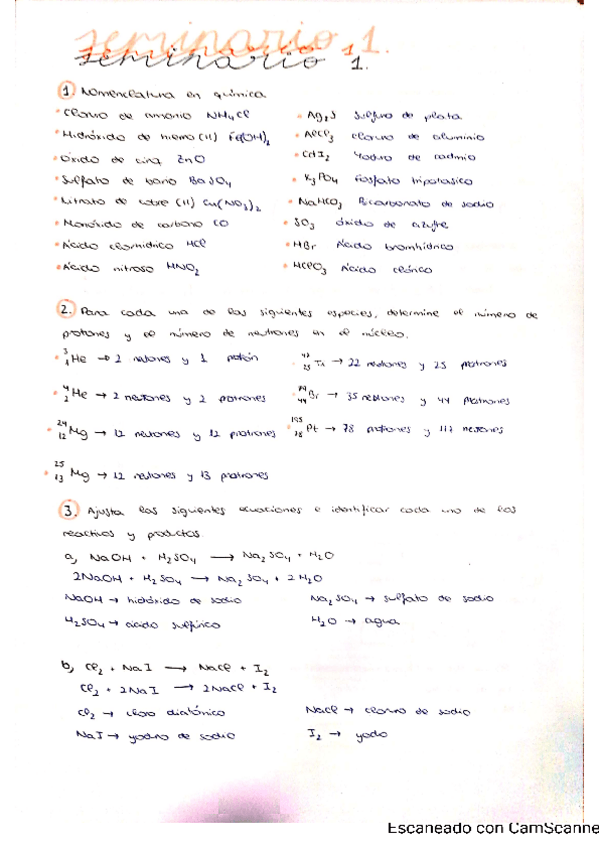 seminario 1.
seminario 1.
1. Nomenclatura en química
• Cloruro de amonio NH₄Cl
• Hidróxido de hierro (II) Fe(OH)₂
• Óxido de cinq ZnO
• Sulfato de bario BaSO₄
• Nitrato de cobre (II) Cu(NO₃)₂
• Monóxido de carbono CO
• Ácido clorhídrico HCl
• Ácido nitroso HNO₂
• Ag₂S Sulfuro de plata
• AlCl₃ cloruro de aluminio
• CdI₂ Yoduro de cadmio
• K₃PO₄ Fosfato tripotásico
• NaHCO₃ Bicarbonato de sodio
• SO₃ óxido de azufre
• HBr Ácido bromhídrico
• HClO₃ Ácido clórico
2. Para cada una de las siguientes especies, determine el número de
protones y el número de neutrones en el núcleo.
• ³₁He → 2 neutrones y 1 protón
• ⁴₂He → 2 neutrones y 2 protrones
• ²⁴₁₂Mg → 12 neutrones y 12 protrones
• ²⁵₁₃Mg → 12 neutrones y 13 protrones
→ 22 neutrones y 25 protrones
Br → 35 neutrones y 44 protrones
• ¹⁹⁵₇₈Pt → 78 protones y 117 neutrones
3. Ajusta las siguientes ecuaciones e identificar cada uno de los
reactivos y productos.
a) NaOH + H₂SO₄ → Na₂SO₄ + H₂O
2NaOH + H₂SO₄ → Na₂SO₄ + 2H₂O
NaOH → hidróxido de sodio
Na₂SO₄ → sulfato de sodio
H₂SO₄ → ácido sulfúrico
H₂O → agua
b) Cl₂ + NaI → NaCl + I₂
Cl₂ + 2NaI → 2NaCl + I₂
Cl₂ → cloro diatónico
NaCl → cloruro de sodio
NaI → yoduro de sodio
I₂ → yodo
Escaneado con CamScanne